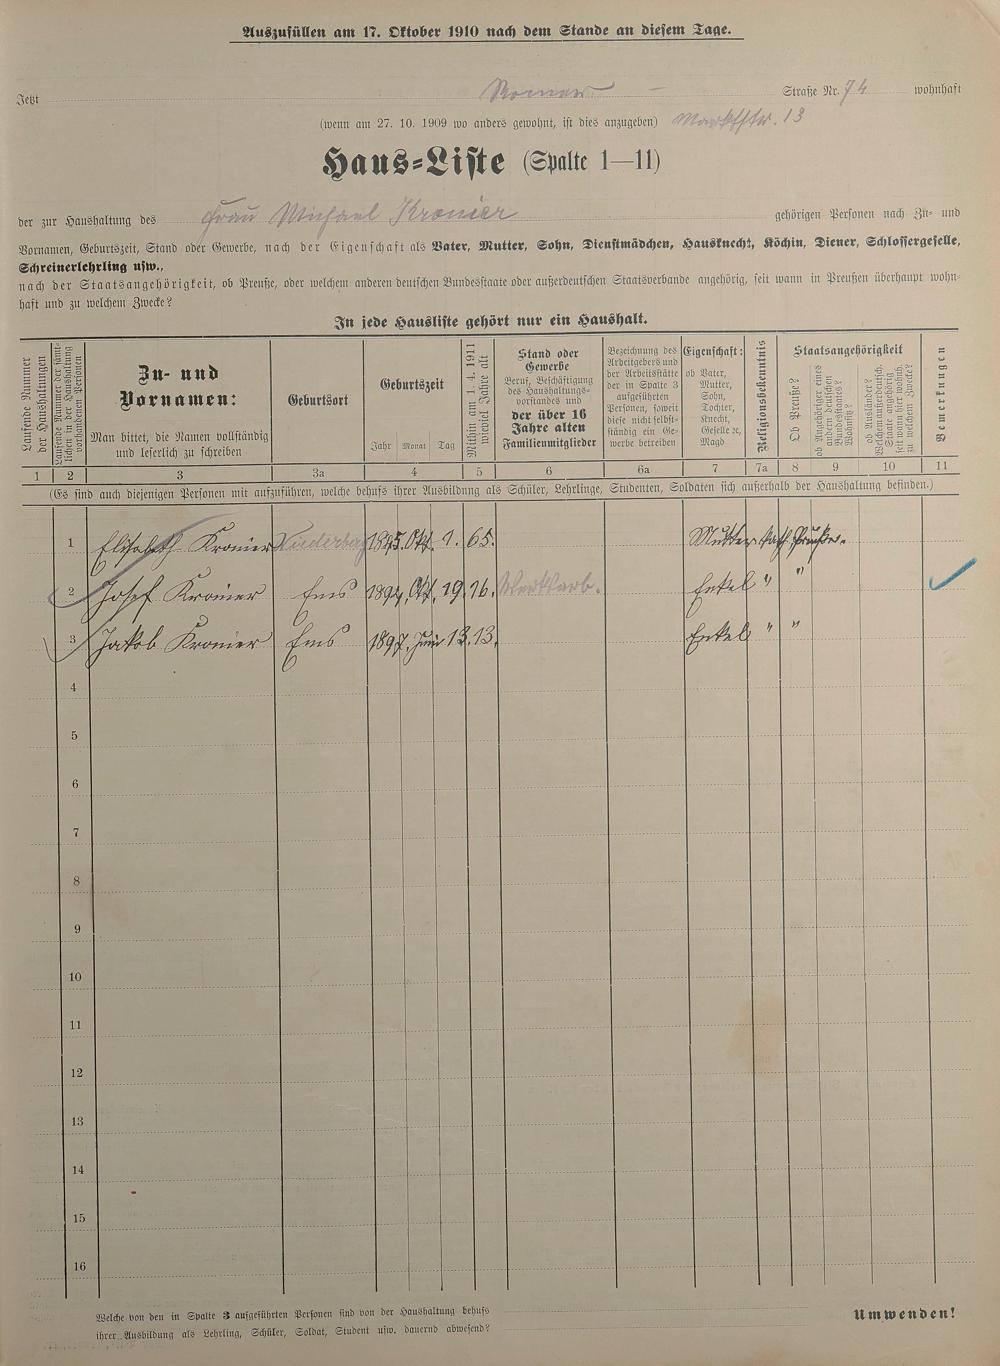 Auszufüllen am 17. Oktober 1910 nach dem Stande an diesem Tage.
Jetzt Römer – Straße Nr. 74 wohnhaft
(wenn am 27. 10. 1909 wo anders gewohnt, ist dies anzugeben) Marktstr. 13
Haus-Liste (Spalte 1—11)
der zur Haushaltung des Frau Michael Kronier gehörigen Personen nach Zu- und
Vornamen, Geburtszeit, Stand oder Gewerbe, nach der Eigenschaft als Vater, Mutter, Sohn, Dienstmädchen, Hausknecht, Köchin, Diener, Schlossergeselle,
Schreinerlehrling usw.,
nach der Staatsangehörigkeit, ob Preuße, oder welchem anderen deutschen Bundesstaate oder außerdeutschen Staatsverbande angehörig, seit wann in Preußen überhaupt wohn-
haft und zu welchem Zwecke?
In jede Hausliste gehört nur ein Haushalt.
Laufende Nummer
der Haushaltungen
Laufende Nummer der sämt-
lichen in der Haushaltung
vorhandenen Personen
Zu- und
Vornamen:
Man bittet, die Namen vollständig
und leserlich zu schreiben
Geburtsort
Geburtszeit
Jahr Monat Tag
Mithin am 1. 4. 1911
wieviel Jahre alt
Stand oder
Gewerbe
Beruf, Beschäftigung
des Haushaltungs-
vorstandes und
der über 16
Jahre alten
Familienmitglieder
Bezeichnung des
Arbeitgebers und
der Arbeitsstätte
der in Spalte 3
aufgeführten
Personen, soweit
diese nicht selbst-
ständig ein Ge-
werbe betreiben
Eigenschaft:
ob Vater,
Mutter,
Sohn,
Tochter,
Knecht,
Geselle ꝛc,
Magd
Religionsbekenntnis
Staatsangehörigkeit
Ob Preuße?
ob Angehöriger eines
andern deutschen
Bundesstaates?
Wohnsitz?
ob Ausländer?
Welchem außerdeutsch.
Staate angehörig
seit wann hier wohnh.
zu welchem Zwecke?
Bemerkungen
1 2 3 3a 4 5 6 6a 7 7a 8 9 10 11
(Es sind auch diejenigen Personen mit aufzuführen, welche behufs ihrer Ausbildung als Schüler, Lehrlinge, Studenten, Soldaten sich außerhalb der Haushaltung befinden.)
1 Elisabeth Kronier Niederberg 1845. Okt. 1. 65. Mutter kath Preuße.
2 Josef Kronier Ems 1894. Okt. 19. 16. Enkel " "
3 Jakob Kronier Ems 1897. Juni 13. 13. Enkel " "
4
5
6
7
8
9
10
11
12
13
14
15
16
Welche von den in Spalte 3 aufgeführten Personen sind von der Haushaltung behufs
ihrer Ausbildung als Lehrling, Schüler, Soldat, Student usw. dauernd abwesend?
Umwenden!